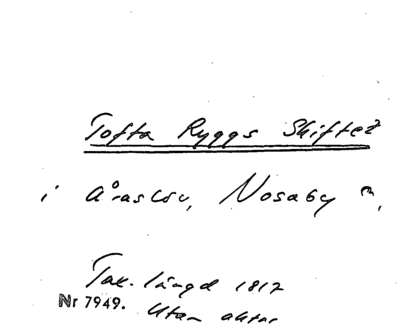 Tofta Ryggs Skiftet
i Åraslöv, Nosaby
Tax. längd 1817
Nr 7949. Utan aktnr